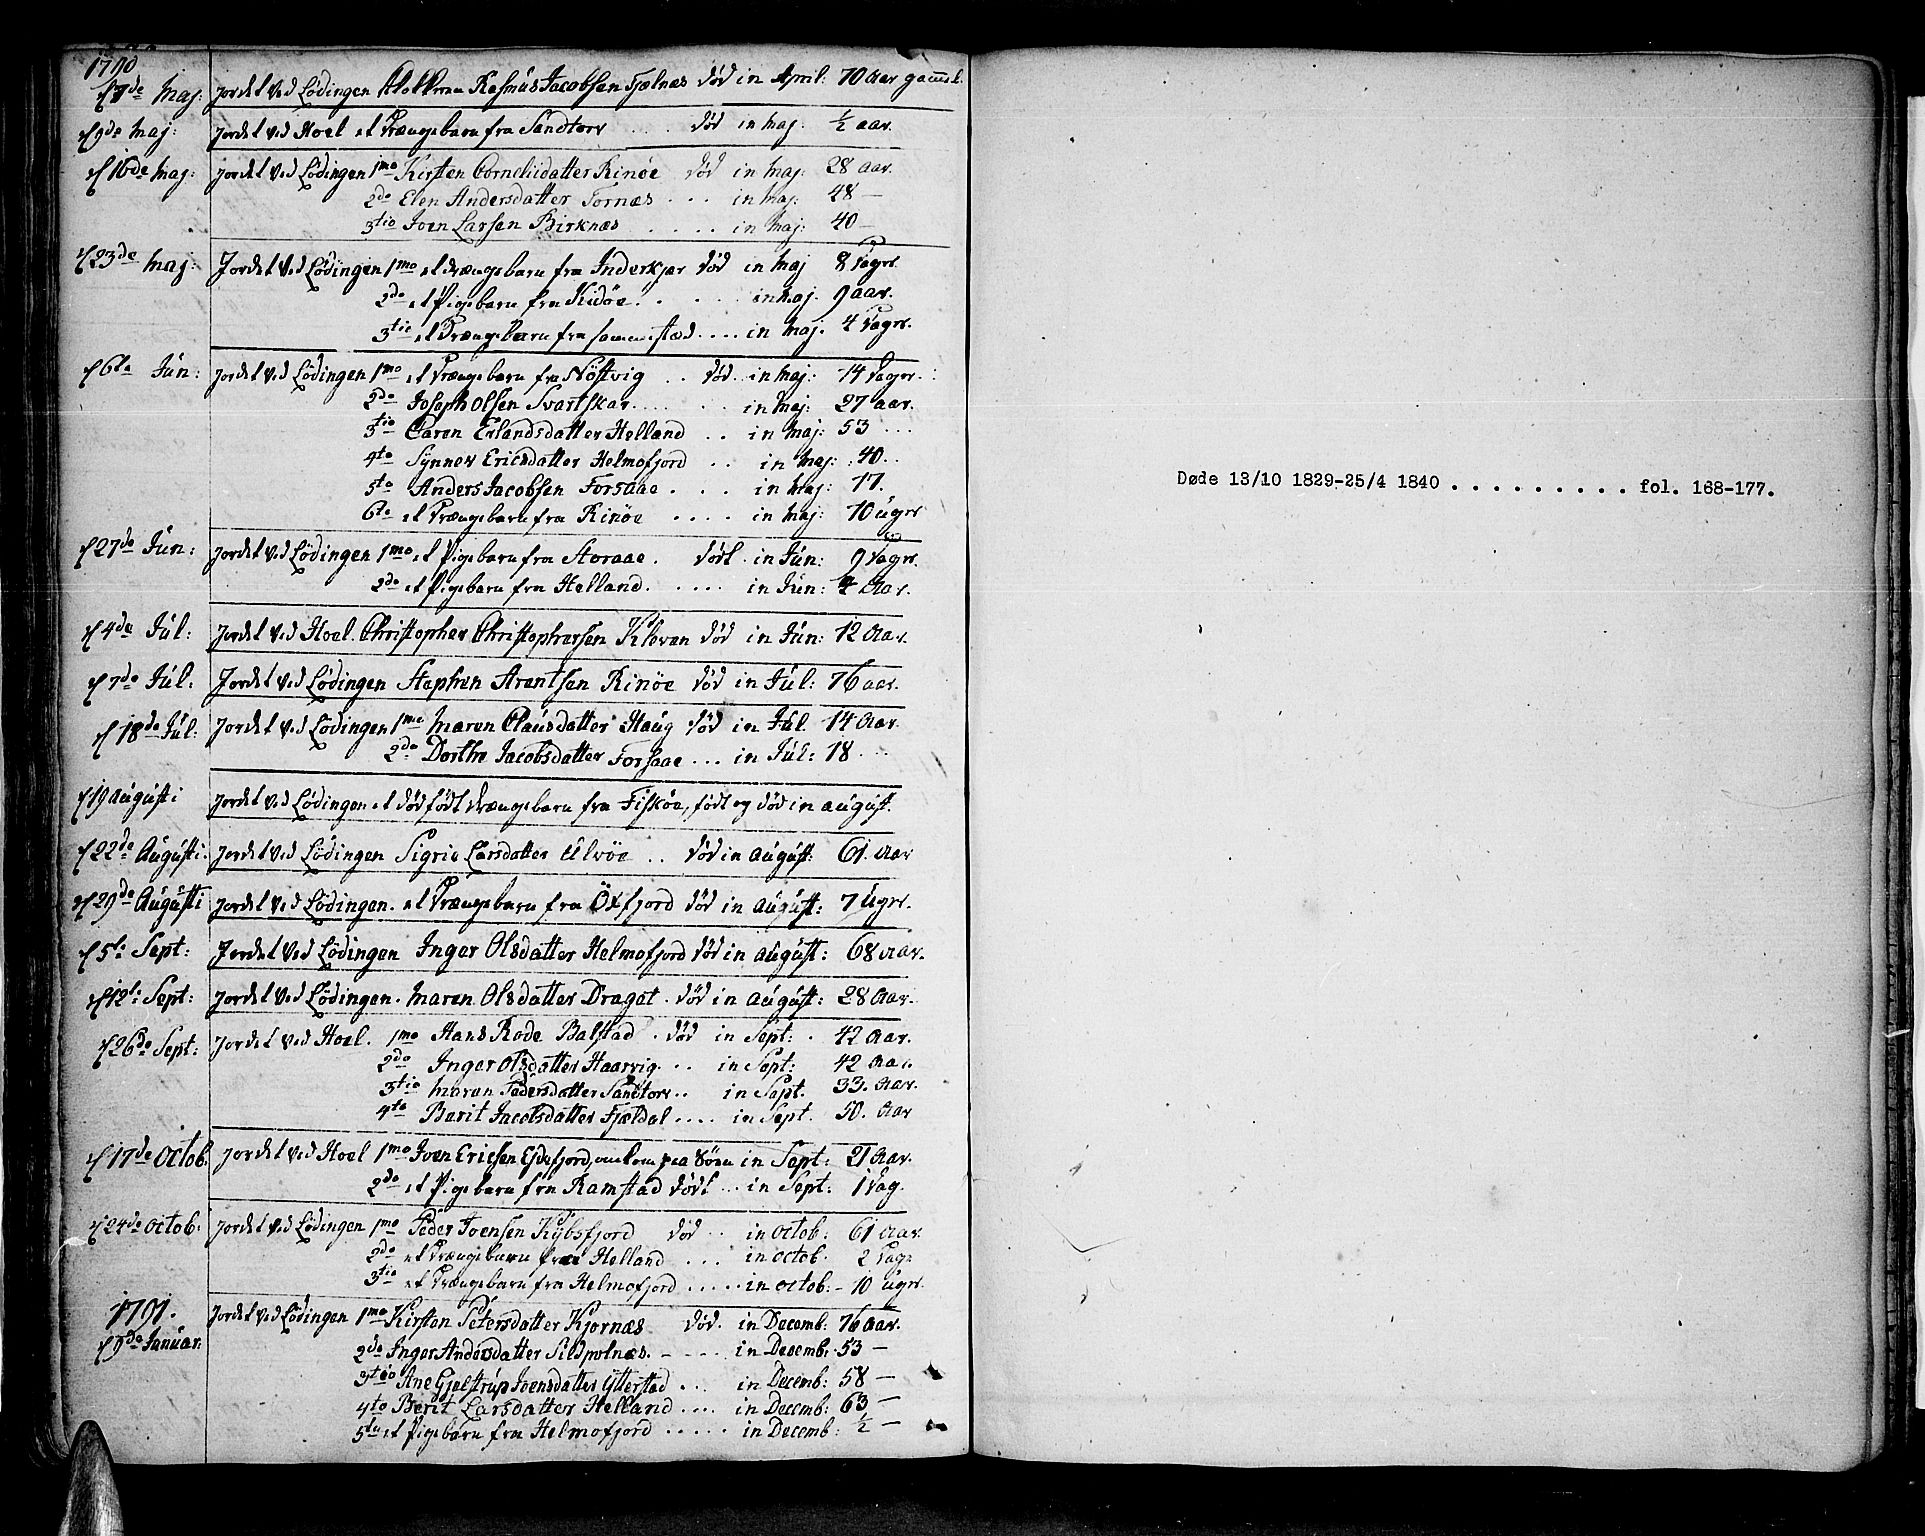 1790
d 7de Maj: Jordet ved Lödingen Rasmus Jacobsen Fjelnæs död in April: 70 Aar gammel.
d 9de Maj: Jordet ved Hoel et Drængebarn fra Sandtorv .... död in Maj: ½ aar.
d 16de Maj: Jordet ved Lödingen 1mo Kirsten Corneliidatter Rinöe död in Maj: 28 aar.
2do Elen Andersdatter Fornæs .... in Maj: 48 —
3tio Joen Larsen Birknæs ..... in Maj: 40 —
d 23de Maj: Jordet ved Lödingen 1mo et drængebarn fra Inderkjær död in Maj 8 Dage.
2do et Pigebarn fra Kidöe. .... in Maj. 9 aar.
3tio et Drængebarn fra sammestæd .... in Maj. 4 Dage.
d 6te Jun: Jordet ved Lödingen 1mo et Drængebarn fra Nöstvig .. död. in Maj: 14 Dage.
2do Joseph Olsen Svartskar .... in Maj: 27 aar.
3tio Caren Erlandsdatter Helland .. in Maj: 53 ...
4to Synnev Ericsdatter Helmofjord .. in Maj: 40..
5to Anders Jacobsen Forsaae .... in Maj: 17.
6to et Drængebarn fra Rinöe .... in Maj: 10 Uger
d 27de Jun: Jordet ved Lödingen 1mo et Pigebarn fra Storaae. död in Jun: 9 Dage.
2do et Pigebarn fra Helland ..... in Jun: 4 Aar.
d 4de Jul: Jordet ved Hoel. Christopher Christophersen Kleven död in Jun: 12 Aar.
d 7de Jul: Jordet ved Lödingen Stephen Arentsen Rinöe död in Jul: 76 aar.
d 18de Jul: Jordet ved Lödingen 1mo Maren Clausdatter Haug död in Jul 14 Aar.
2do Dorthe Jacobsdatter Forsaae ... in Jul: 18 ...
d 19 Augusti Jordet ved Lödingen et dödfödt drængebarn fra Fisköe, födt og död in August.
d 22de Augusti. Jordet ved Lödingen Sigrie Larsdatter Ulvöe .. död in August: 61. Aar
d 29de Augusti Jordet ved Lödingen. et Drængebarn fra Öxfjord död in August: 7 Uger.
d 5te Sept: Jordet ved Lödingen Inger Olsdatter Helmofjord död in August: 68 Aar.
d 12te Sept: Jordet ved Lödingen. Maren Olsdatter Dragat. död in August: 28 Aar.
d 26de Sept: Jordet ved Hoel. 1mo Hans Rode Balstad . död in Sept: . 42 Aar.
2do Inger Olsdatter Haarvig ... in Sept: 42 Aar.
3tio Maren Pedersdatter Sandtorv .. in Sept. 33. Aar.
4to Berit Jacobsdatter Fjeldal .... in Sept. 50. Aar
d 17de Octob. Jordet ved Hoel 1mo Joen Ericsen Eidefjord, omkom paa Söen in Sept: 21 Aar.
2do et Pigebarn fra Ramstad död ... in Sept: 1 Dag.
d 24de Octob: Jordet ved Lödingen 1mo Peder Joensen Kybsfjord död .. in Octob: 61 Aar.
2do et Drængebarn fra Helland ... in Octob. 2 Dage
3tio et Drængebarn fra Helmofjord ..... in Octob: - 10 Uger.
1791.
d 9de Januar. Jordet ved Lödingen 1mo Kirsten Petersdatter Kjörnæs död. in Decemb: 76 aar.
2do Inger Andersdatter Sildpolnæs. - .... in Decemb: 53 —
3tio Ane Gjelstrup Joensdatter Ytterstad ... in Decemb: 58 —
4to Berit Larsdatter Helland .... in Decemb: 63 —
5to et Pigebarn fra Helmofjord ..... in Decemb: ½ —
Døde 13/10 1829-25/4 1840 .......... fol. 168-177.